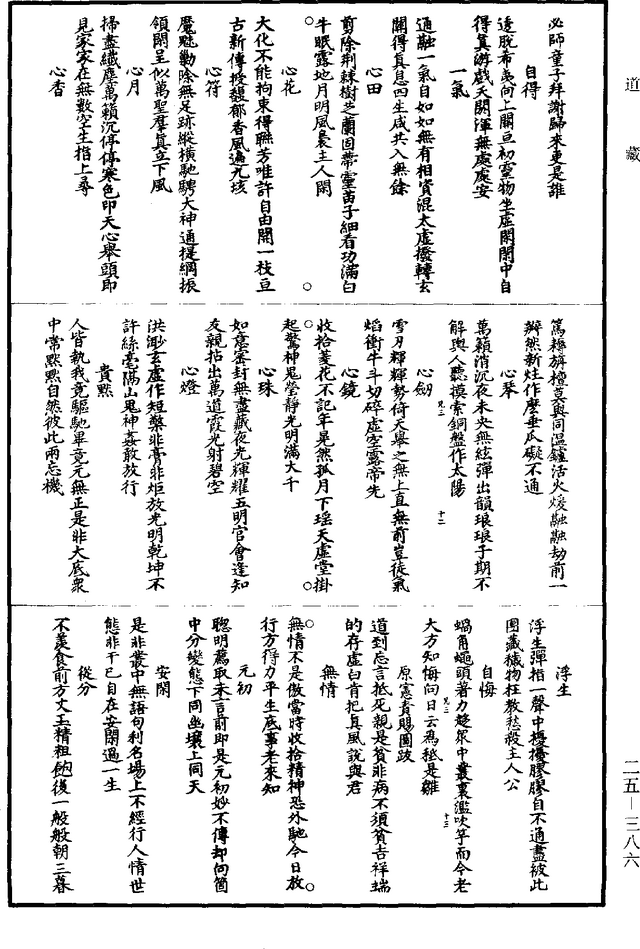 道藏
必師童子拜謝歸來更是誰
自得
透脫希夷向上關亘初靈物坐虛閑閑中自
得真游戲天闊渾無處處安
一氣
通融一氣自如如無有相資混太虛撥轉玄
關得真息四生咸共入無餘
心田
剪除荆棘樹芝蘭固蔕靈苗子細看功滿白
牛眠露地月明風裊主人閑
心花
大化不能拘束得聯芳唯許自由開一枝亘
古新傳授馥郁香風遍九垓
心符
魔魅勦除無足跡縱橫馳騁大神通提綱振
領開呈似萬聖羣真立下風
心月
掃盡纖塵萬籟沉停停寒色印天心舉頭即
見家家在無數空生指上尋
心香
篤耨旃檀莫與同温鑪活火煖融融劫前一
瓣然新炷作麽垂瓜礙不通
心琴
萬籟消沉夜未央無絃彈出韻琅琅子期不
解與人聽摸索銅盤作太陽
心劒
雪刃輝輝勢倚天舉之無上直無前豈徒氣
焰衝牛斗切碎虛空露帝先
心鏡
收拾菱花不記年晃然孤月下瑶天虛堂掛
起驚神鬼瑩靜光明滿大千
心珠
如意牢封無盡藏夜光輝耀五明宫會逢知
友親拈出萬道霞光射碧空
心燈
洪濛玄虛作短檠非膏非炬放光明乾坤不
許絲毫隔山鬼神姦敢放行
貴默
人皆執我竟驅馳畢竟元無正是非大底衆
中常默默自然彼此兩忘機
浮生
浮生彈指一聲中擾擾膠膠自不通盡被此
團藏穢物枉教愁殺主人公
自悔
蝸角蠅頭著力趍衆中叢裏濫吹竽而今老
大方知悔向日云為秪是雖
原憲貴賜圖跋
道到忘言抵死親是貧非病不須貧吉祥端
的存虛白肯把真風說與君
無情
無情不是傲當時收拾精神恐外馳今日放
行方得力平生底事老來知
元初
聦明薦取未言前即是元初妙不傳却向箇
中分變態下同幽壤上同天
安閑
是非叢中無語句利名場上不經行人情世
態非干已自在安閑過一生
從分
不羨食前方丈玉精粗飽後一般般朝三暮
二五—三八六